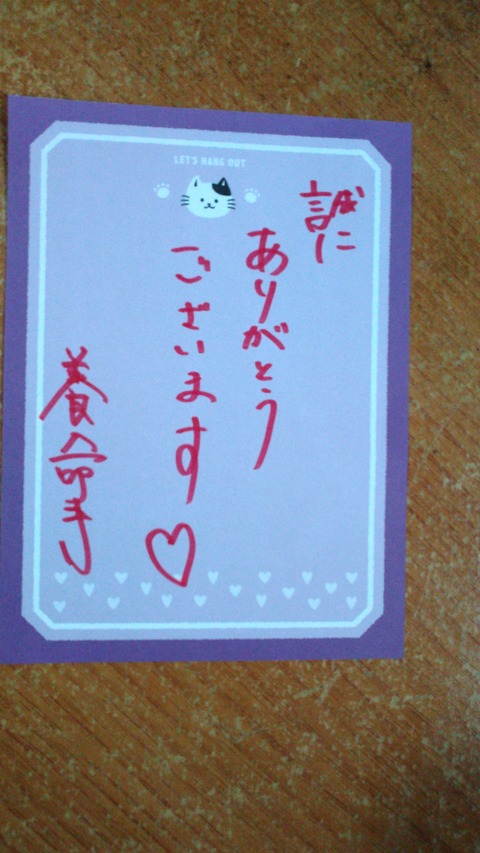 LET'S HANG OUT
誠に
ありがとう
ございます♡
養命手